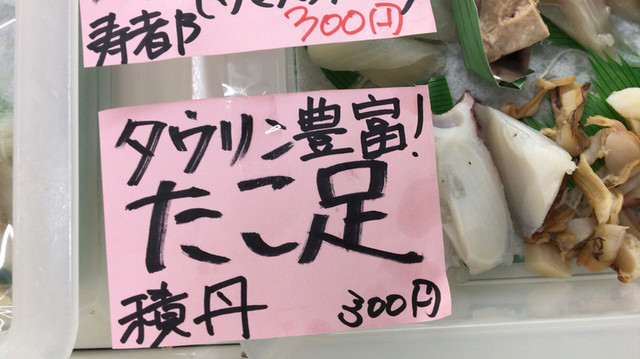 寿都 300円
タウリン豊富!
たこ足
積丹 300円